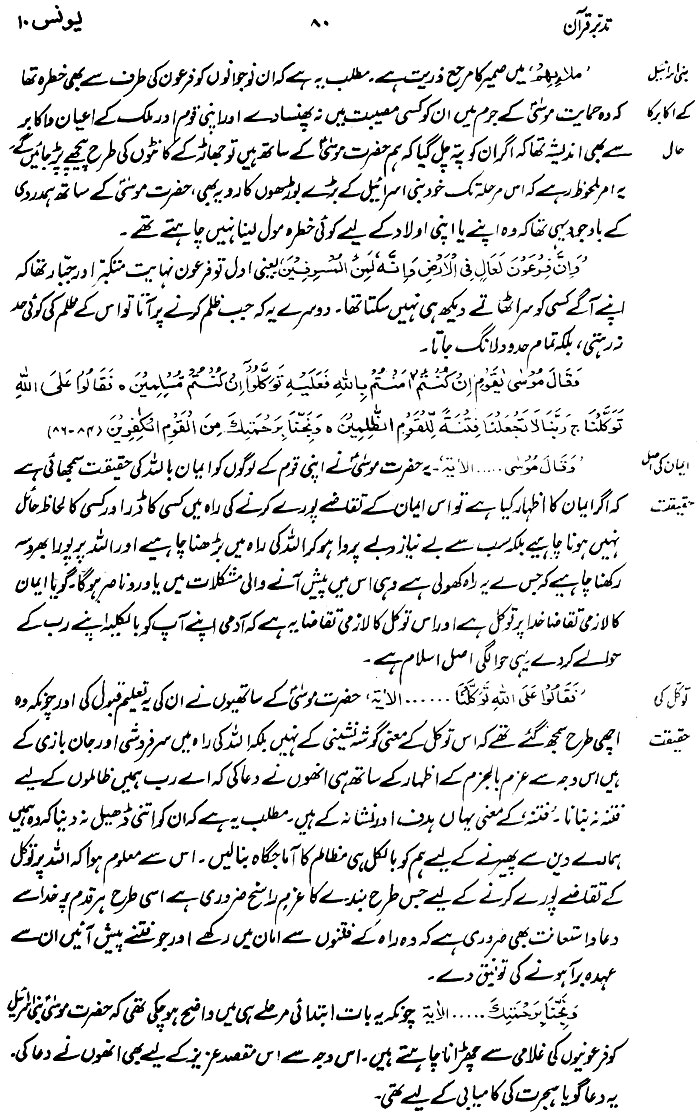 تدبرِ قرآن ۸۰ یونس ۱۰
بنی اسرائیل
کے اکابر کا
حال
’ملائهم‘ میں ضمیر کا مرجع ذریت ہے۔ مطلب یہ ہے کہ ان نوجوانوں کو فرعون کی طرف سے بھی خطرہ تھا
کہ وہ حمایت موسیٰؑ کے جرم میں ان کو کسی مصیبت میں نہ پھنسا دے اور اپنی قوم اور ملک کے اعیان و اکابر
سے بھی اندیشہ تھا کہ اگر ان کو پتہ چل گیا کہ ہم حضرت موسیٰؑ کے ساتھ ہیں تو جھاڑ کے کانٹوں کی طرح پیچھے پڑ جائیں گے
یہ امر ملحوظ رہے کہ اس مرحلہ تک خود بنی اسرائیل کے بڑے بوڑھوں کا رویہ بھی، حضرت موسیٰؑ کے ساتھ ہمدردی
کے باوجود یہی تھا کہ وہ اپنے یا اپنی اولاد کے لیے کوئی خطرہ مول لینا نہیں چاہتے تھے۔
’وَاِنَّ فِرْعَوْنَ لَعَالٍ فِی الْاَرْضِ وَاِنَّهٗ لَمِنَ الْمُسْرِفِیْنَ‘ یعنی اول تو فرعون نہایت متکبر اور جبّار تھا کہ
اپنے آگے کسی کو سر اٹھاتے دیکھ ہی نہیں سکتا تھا۔ دوسرے یہ کہ جب ظلم کرنے پر آتا تو اس کے ظلم کی کوئی حد
نہ رہتی، بلکہ تمام حدود لانگ جاتا۔
وَقَالَ مُوْسٰی یٰقَوْمِ اِنْ كُنْتُمْ اٰمَنْتُمْ بِاللّٰهِ فَعَلَیْهِ تَوَكَّلُوْٓا اِنْ كُنْتُمْ مُّسْلِمِیْنَ ہ فَقَالُوْا عَلَی اللّٰهِ
تَوَكَّلْنَا ج رَبَّنَا لَا تَجْعَلْنَا فِتْنَةً لِّلْقَوْمِ الظّٰلِمِیْنَ ہ وَنَجِّنَا بِرَحْمَتِكَ مِنَ الْقَوْمِ الْكٰفِرِیْنَ (۸۴-۸۶)
ایمان کی اصل
حقیقت
’وَقَالَ مُوْسٰی ..... الاٰیة‘۔ یہ حضرت موسیٰؑ نے اپنی قوم کے لوگوں کو ایمان باللہ کی حقیقت سمجھائی ہے
کہ اگر ایمان کا اظہار کیا ہے تو اس ایمان کے تقاضے پورے کرنے کی راہ میں کسی کا ڈر اور کسی کا لحاظ حائل
نہیں ہونا چاہیے بلکہ سب سے بے نیاز و بے پروا ہو کر اللہ کی راہ میں بڑھنا چاہیے اور اللہ پر پورا بھروسہ
رکھنا چاہیے کہ جس نے یہ راہ کھولی ہے وہی اس میں پیش آنے والی مشکلات میں یاور و ناصر ہوگا۔ گویا ایمان
کا لازمی تقاضا خدا پر توکل ہے اور اس توکل کا لازمی تقاضا یہ ہے کہ آدمی اپنے آپ کو بالکلیہ اپنے رب کے
حوالے کر دے یہی حوالگی اصل اسلام ہے۔
توکل کی
حقیقت
’فَقَالُوْا عَلَی اللّٰهِ تَوَكَّلْنَا ...... الاٰیة‘ حضرت موسیٰؑ کے ساتھیوں نے ان کی یہ تعلیم قبول کی اور چونکہ وہ
اچھی طرح سمجھ گئے تھے کہ اس توکل کے معنی گوشہ نشینی کے نہیں بلکہ اللہ کی راہ میں سرفروشی اور جان بازی کے
ہیں اس وجہ سے عزم بالجزم کے اظہار کے ساتھ ہی انھوں نے دعا کی کہ اے رب ہمیں ظالموں کے لیے
فتنہ نہ بنانا۔ ’فتنہ‘ کے معنی یہاں ہدف اور نشانہ کے ہیں۔ مطلب یہ ہے کہ ان کو اتنی ڈھیل نہ دینا کہ وہ ہمیں
ہمارے دین سے پھیرنے کے لیے ہم کو بالکل ہی مظالم کا آماجگاہ بنا لیں۔ اس سے معلوم ہوا کہ اللہ پر توکل
کے تقاضے پورے کرنے کے لیے جس طرح بندے کا عزم راسخ ضروری ہے اسی طرح ہر قدم پر خدا سے
دعا و استعانت بھی ضروری ہے کہ وہ راہ کے فتنوں سے امان میں رکھے اور جو فتنے پیش آئیں ان سے
عہدہ برآ ہونے کی توفیق دے۔
وَنَجِّنَا بِرَحْمَتِكَ ..... الاٰیة چونکہ یہ بات ابتدائی مرحلے ہی میں واضح ہو چکی تھی کہ حضرت موسیٰؑ بنی اسرائیل
کو فرعونیوں کی غلامی سے چھڑانا چاہتے ہیں۔ اس وجہ سے اس مقصد عزیز کے لیے بھی انھوں نے دعا کی۔
یہ دعا گویا ہجرت کی کامیابی کے لیے تھی۔